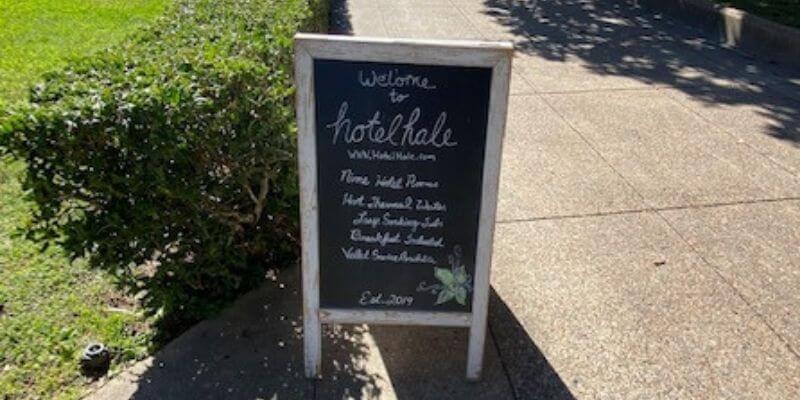 Welcome
to
hotelhale
www.HotelHale.com
Nine Hotel Rooms
Hot Thermal Water
Large Soaking Tubs
Breakfast Included
Valet Service Available
Est. 2019